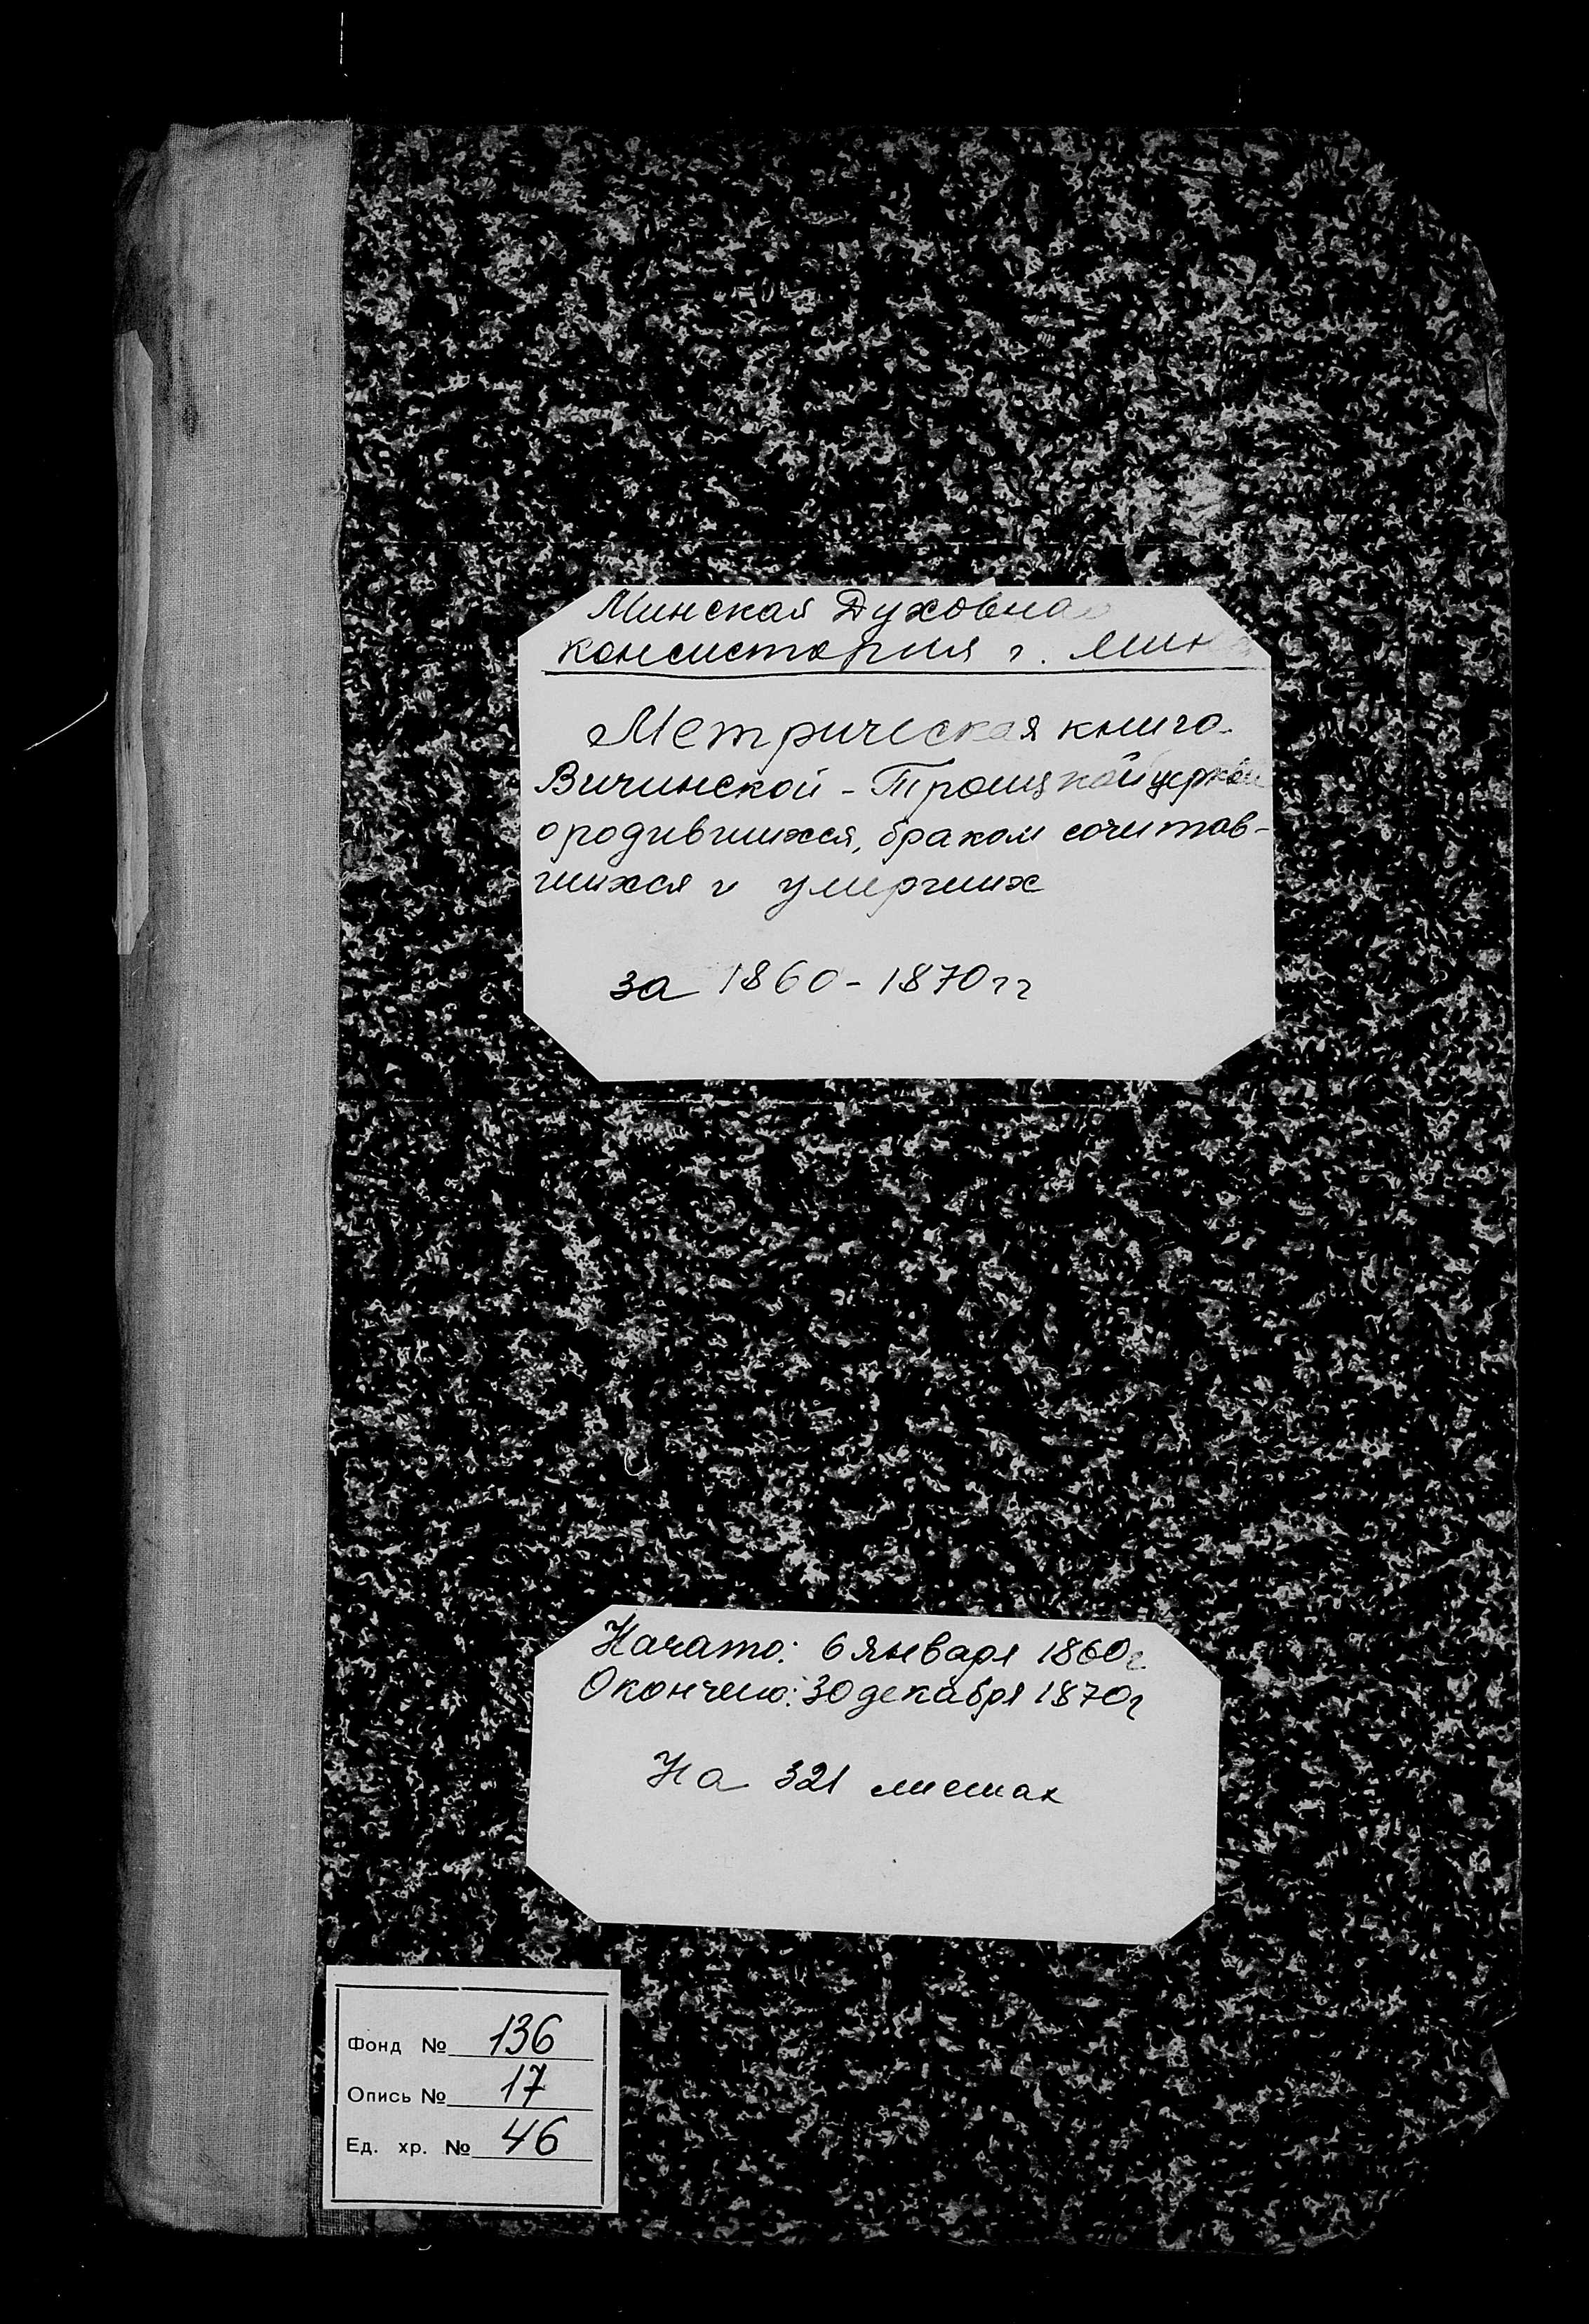 Минская Духовная
консистория г. Минск
Метрическая книга
Вичинской - Троицкой церкви
о родившихся, браком сочитав-
шихся и умерших
за 1860 - 1870 гг
Начато: 6 января 1860 г.
Окончено: 30 декабря 1870 г
На 321 листах
Фонд № 136
Опись № 17
Ед. хр. № 46